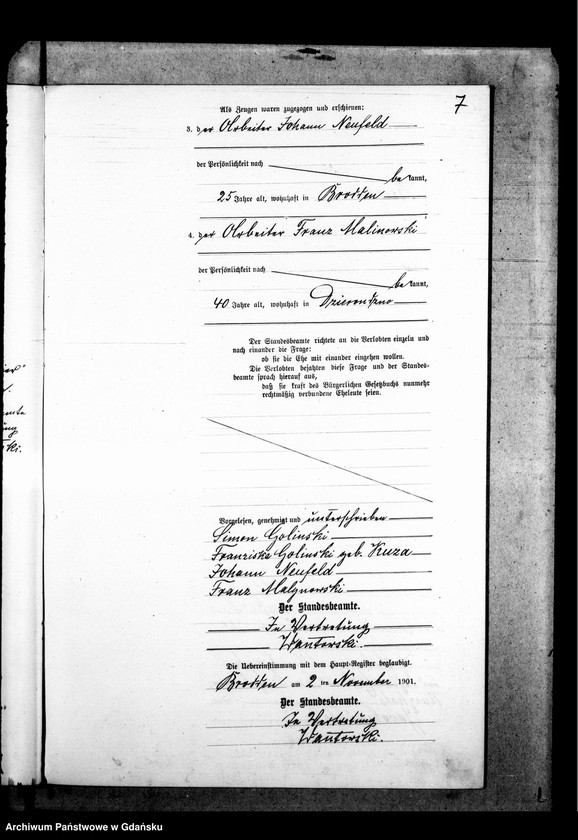 7
Als Zeugen waren zugezogen und erschienen:
3. der Arbeiter Johann Neufeld
der Persönlichkeit nach
bekannt,
25 Jahre alt, wohnhaft in Brodden
4. der Arbeiter Franz Malinowski
der Persönlichkeit nach
bekannt,
40 Jahre alt, wohnhaft in Dzierondzno
Der Standesbeamte richtete an die Verlobten einzeln und
nach einander die Frage:
ob sie die Ehe mit einander eingehen wollen.
Die Verlobten bejahten diese Frage und der Standes-
beamte sprach hierauf aus,
daß sie kraft des Bürgerlichen Gesetzbuchs nunmehr
rechtmäßig verbundene Eheleute seien.
Vorgelesen, genehmigt und unterschrieben
Simon Golinski
Franziska Golinski geb. Kuza
Johann Neufeld
Franz Malynowski
Der Standesbeamte.
In Vertretung
Wantowski.
Die Uebereinstimmung mit dem Haupt-Register beglaubigt.
Brodden am 2 ten November 1901.
Der Standesbeamte.
In Vertretung
Wantowski.
Archiwum Państwowe w Gdańsku